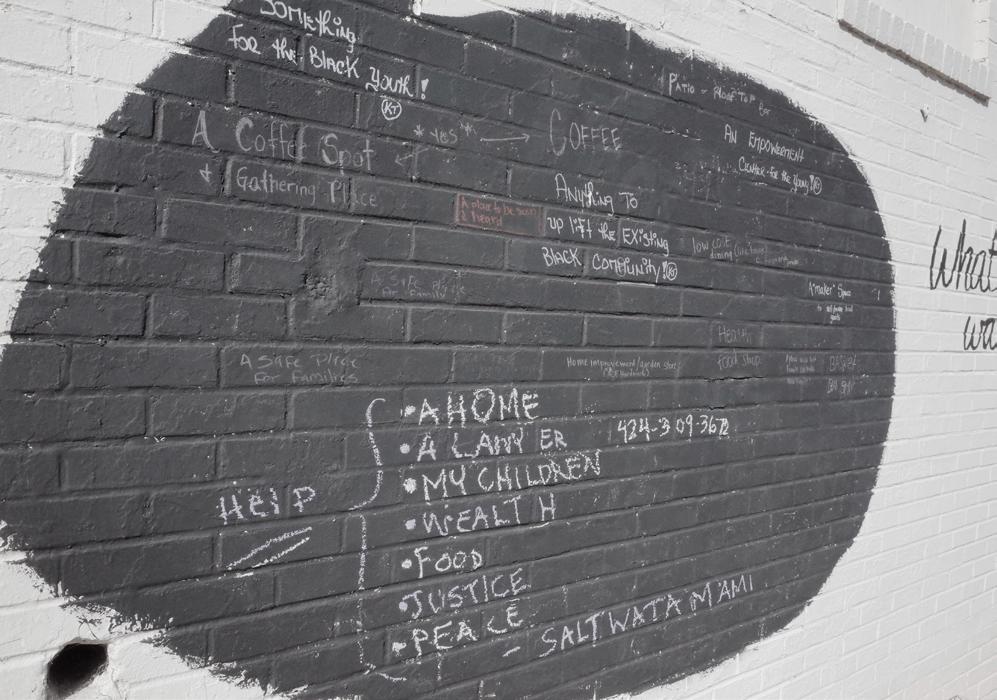 SOMEthing
for the BlACK Youth!
KT
A Coffee Spot
*YES*
COFFEE
& Gathering Place
PATIO - ROOF TOP Bar
AN EMPOWERMENT
CENTER for the Young!
A place to be seen
& heard
ANYthing TO
up lift the EXisting
BlACK COMMUNITY!
low cost
dining
A "maker" Space
A SAFE Place
For Families
A SAFE Place
For Families
Home improvement/garden store
Health
food shop
HElP
•A HOME
•A LAWYER
424-309-3672
•MY CHILDREN
•WEALTH
•FOOD
•JUSTICE
•PEACE
- SALTWATA MIAMI
What
wa